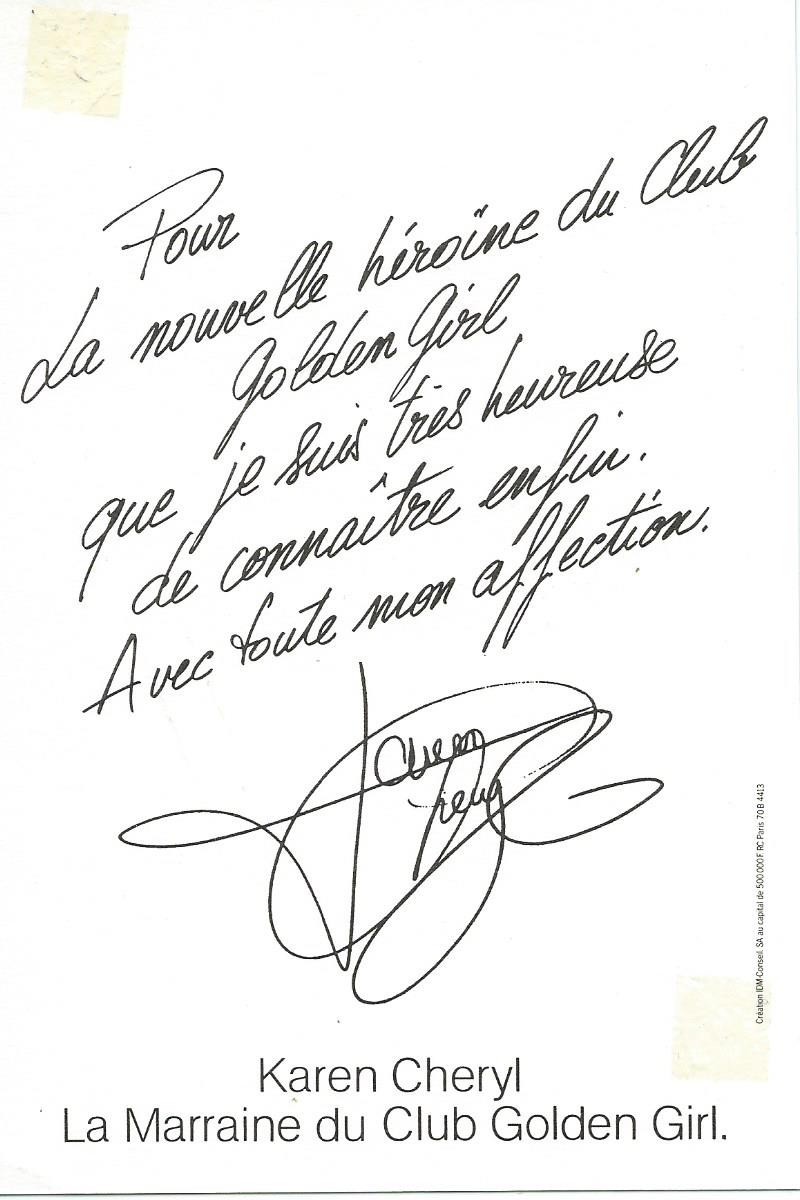 Pour
La nouvelle héroïne du Club
Golden Girl
que je suis très heureuse
de connaître enfin.
Avec toute mon affection.
Karen
Cheryl
Création IDM-Conseil. SA au capital de 500000F. RC Paris 70 B 4413
Karen Cheryl
La Marraine du Club Golden Girl.